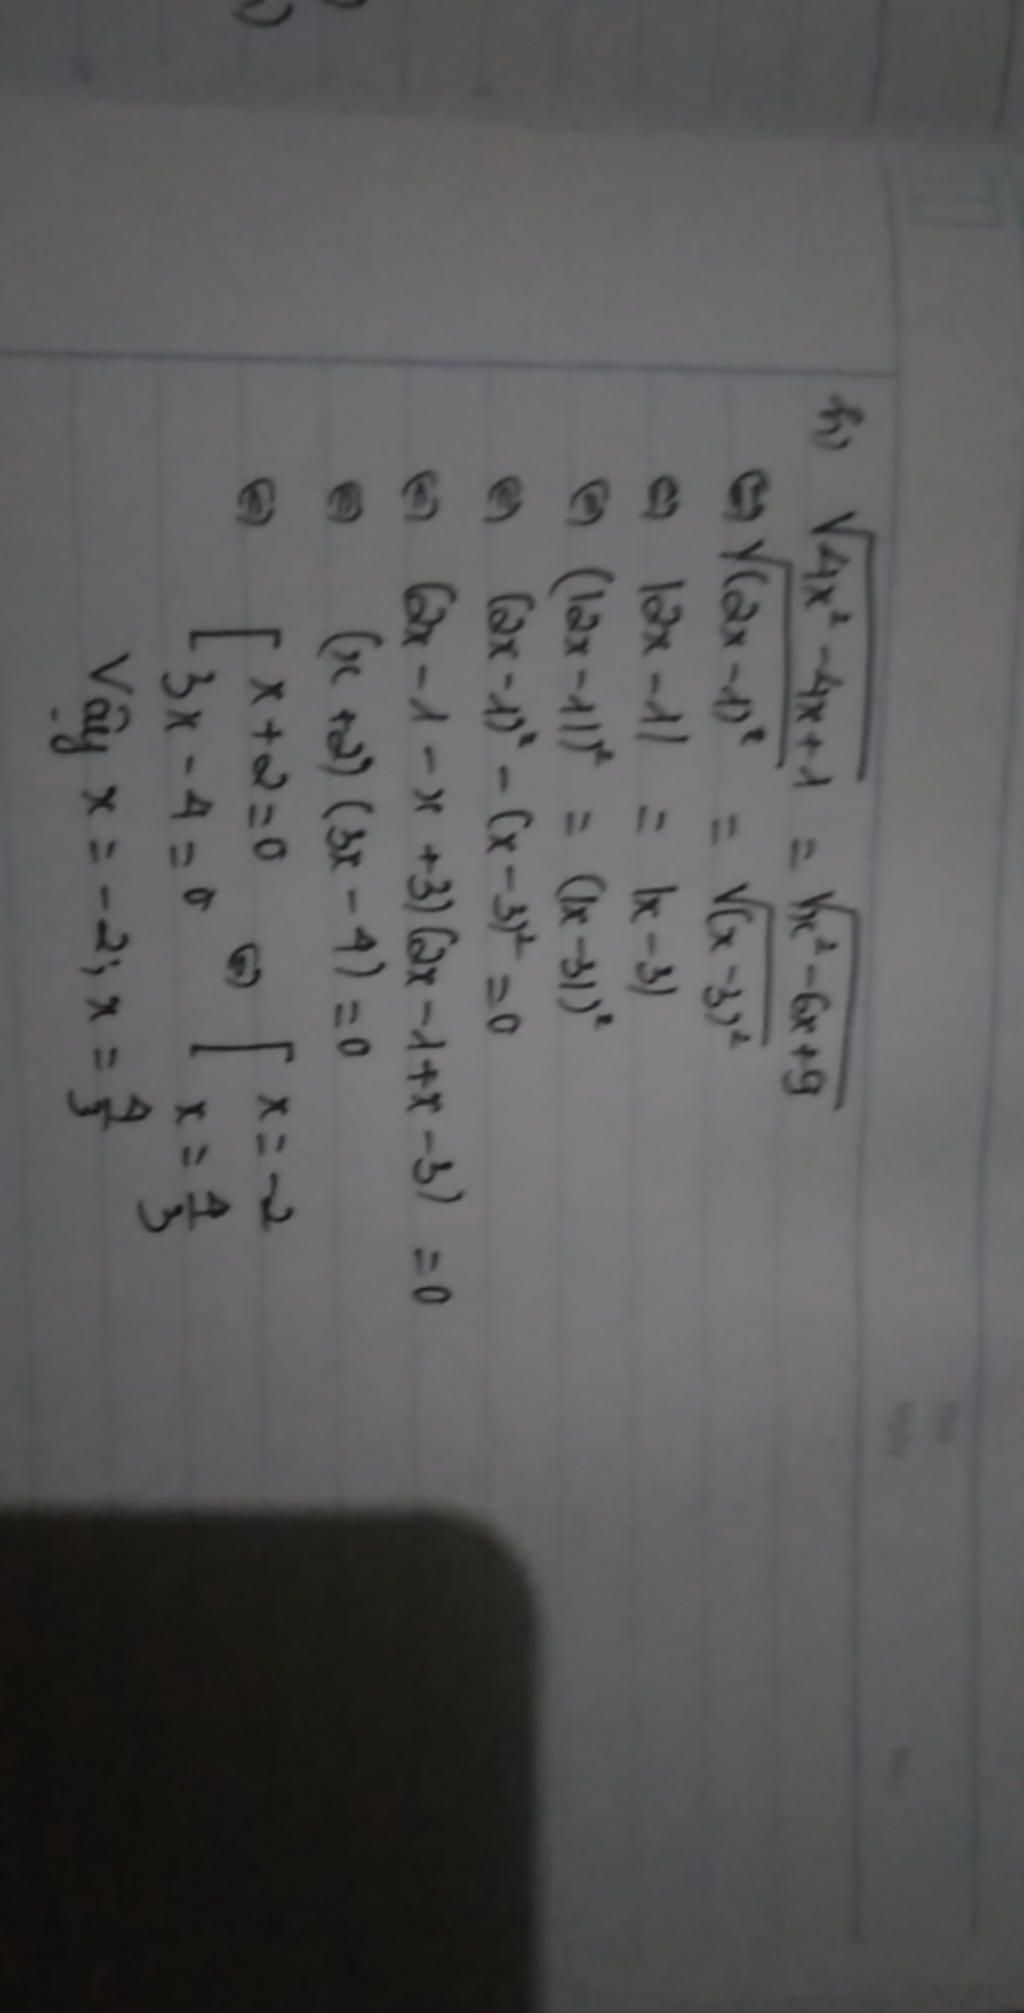 h) √(4x² - 4x + 1) = √(x² - 6x + 9)
⇔ √(2x - 1)² = √(x - 3)²
⇔ |2x - 1| = |x - 3|
⇔ (|2x - 1|)² = (|x - 3|)²
⇔ (2x - 1)² - (x - 3)² = 0
⇔ (2x - 1 - x + 3)(2x - 1 + x - 3) = 0
⇔ (x + 2)(3x - 4) = 0
⇔ [ x + 2 = 0 ⇔ [ x = -2
3x - 4 = 0 x = 4/3
Vậy x = -2; x = 4/3